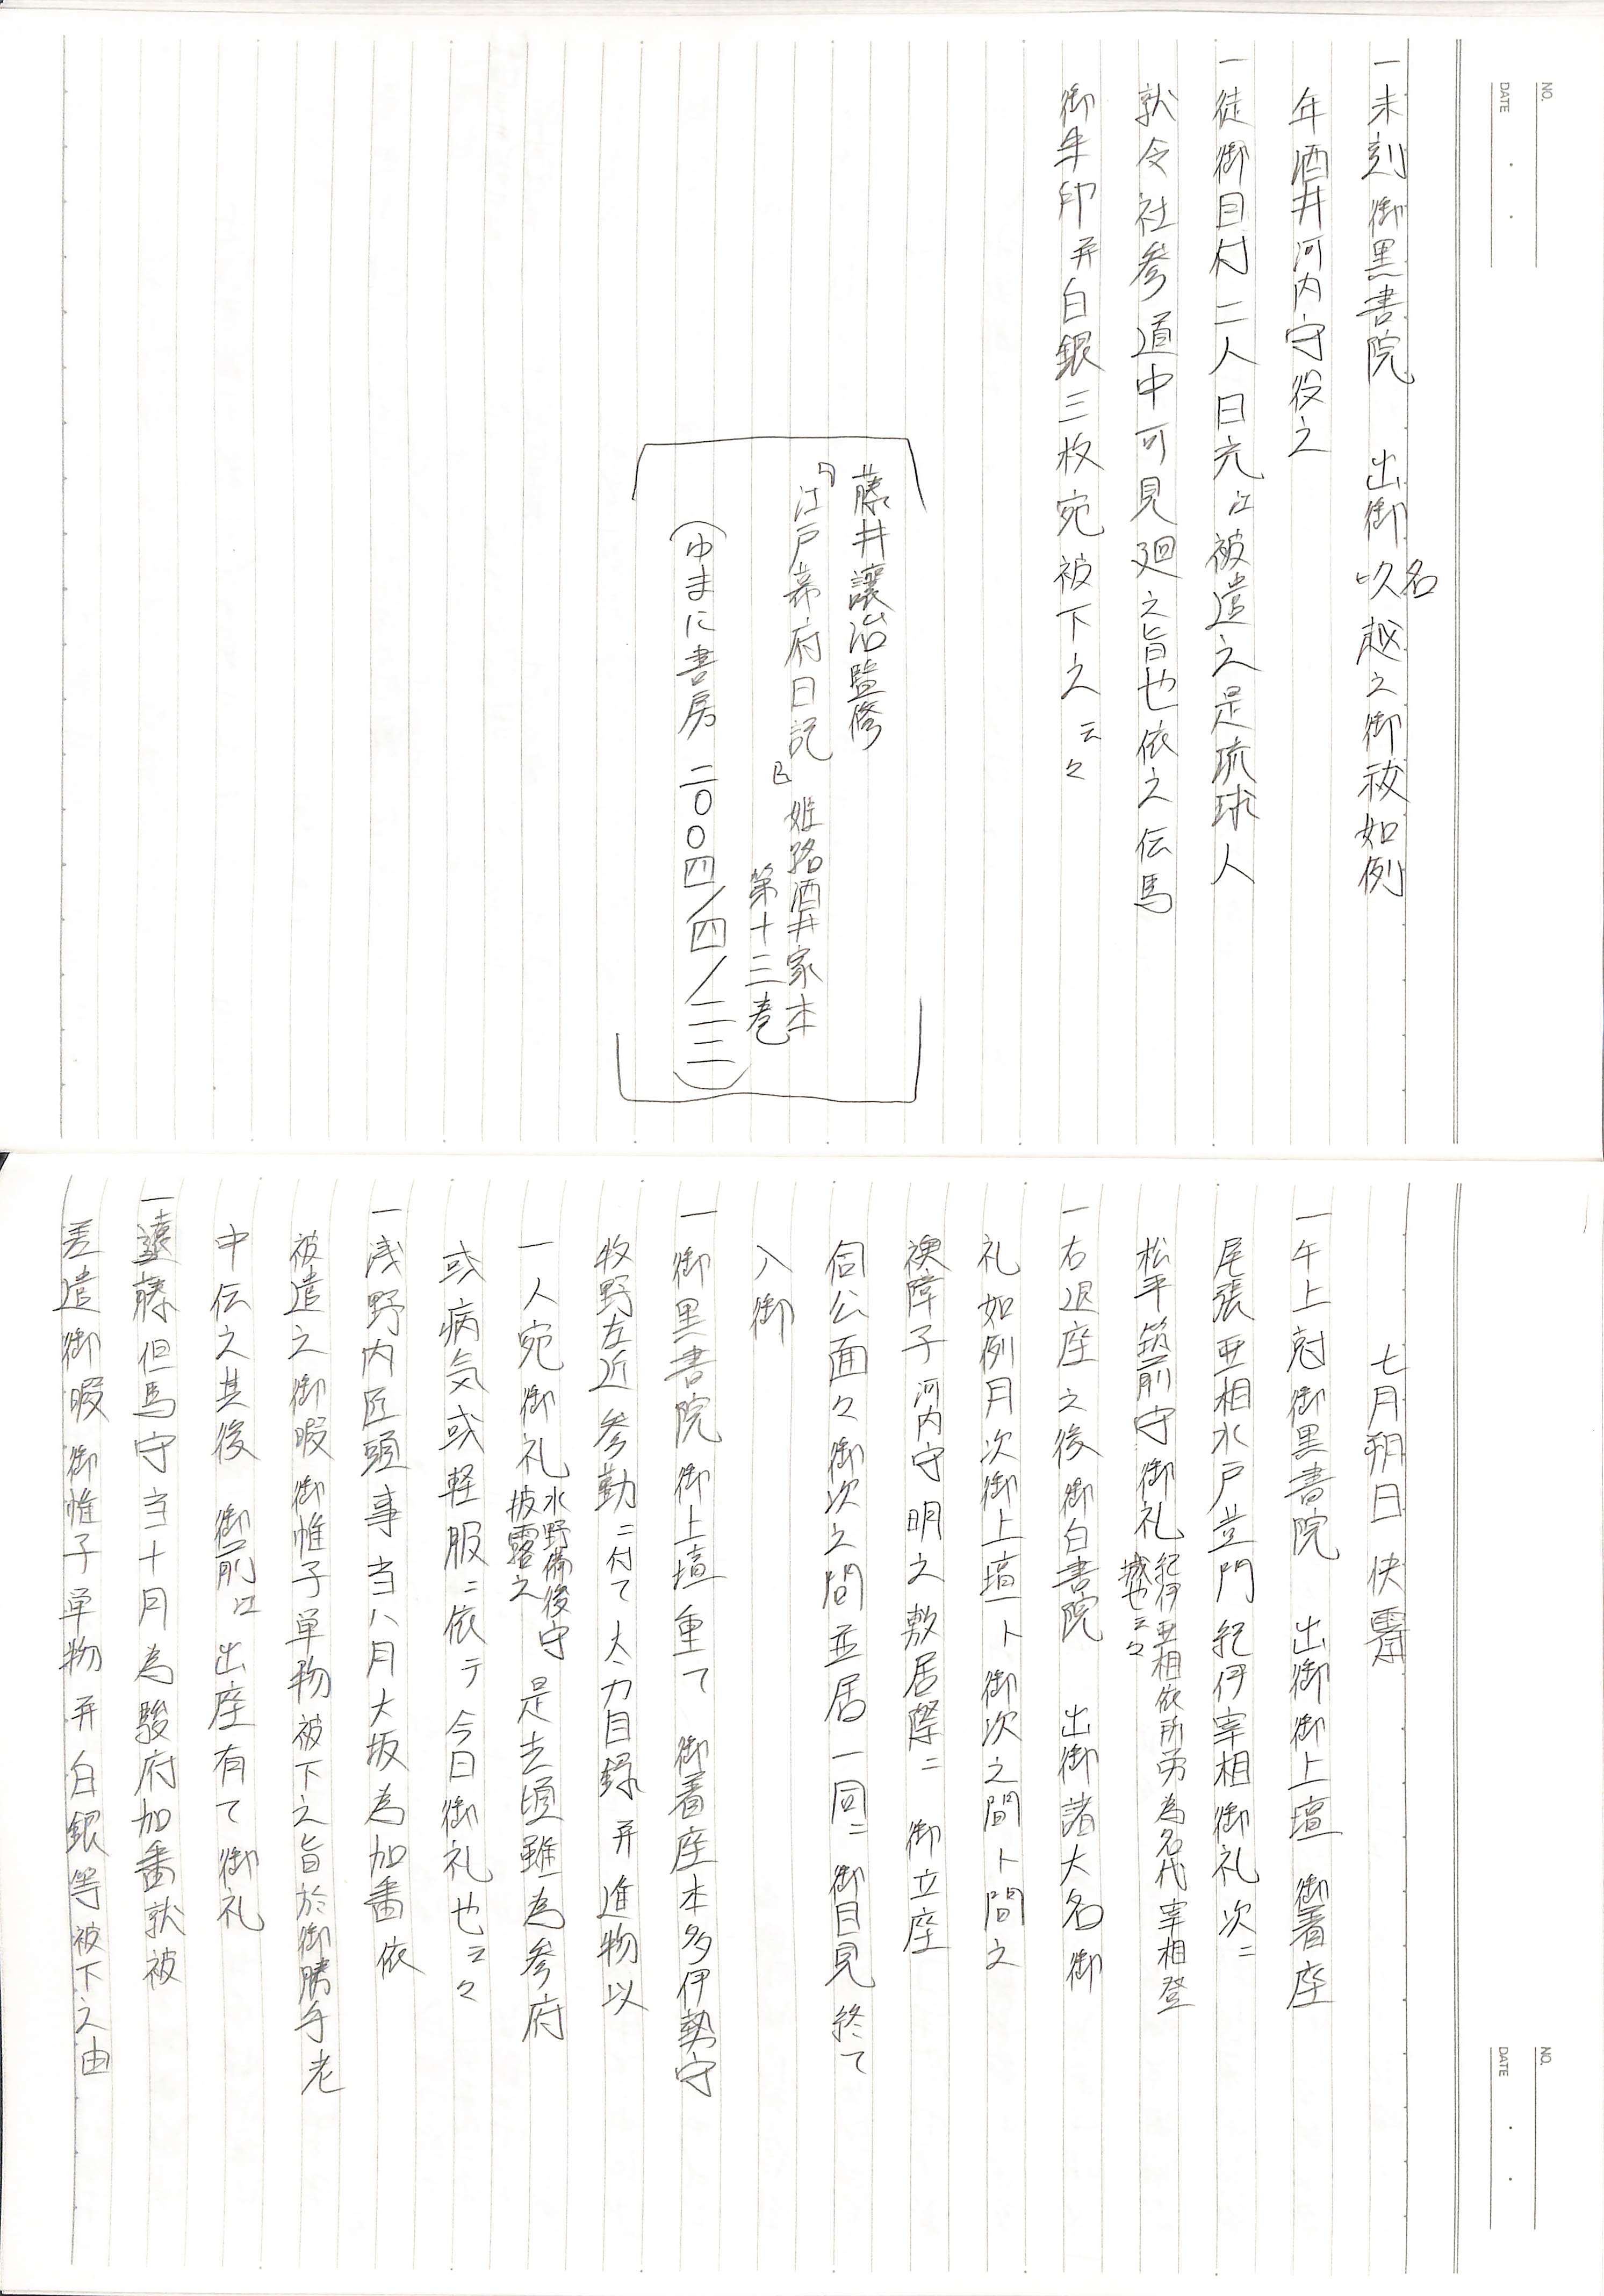 NO.
DATE
一未刻 御黒書院 出御 名越之御祓如例
年酒井河内守役之
一徒御目付二人日光江被遣之是琉球人
就令社参道中可見廻之旨也依之伝馬
御朱印并白銀三枚宛被下之云々
藤井讓治監修
『江戸幕府日記』姫路酒井家本
第十三巻
(ゆまに書房 二〇〇四/四/二三)
NO.
DATE
七月朔日 快霽
一午上尅御黒書院 出御御上壇 御着座
尾張亜相水戸黄門紀伊宰相御礼次ニ
松平筑前守御礼 紀伊亜相依所労為名代宰相登
城也云々
一右退座之後御白書院 出御諸大名御
礼如例月次御上壇ト御次之間ト間之
襖障子河内守明之敷居際ニ 御立座
伺公面々御次之間並居一同ニ 御目見終て
入御
一御黒書院御上壇重て 御着座本多伊勢守
牧野左近参勤ニ付て太刀目録并進物以
一人宛御礼 水野備後守
披露之 是去頃雖為参府
或病気或軽服ニ依テ今日御礼也云々
一浅野内匠頭事当八月大坂為加番依
被遣之御暇御帷子単物被下之旨於御勝手老
中伝之其後 御前江出座有て御礼
一遠藤但馬守当十月為駿府加番就被
差遣御暇御帷子単物并白銀等被下之由